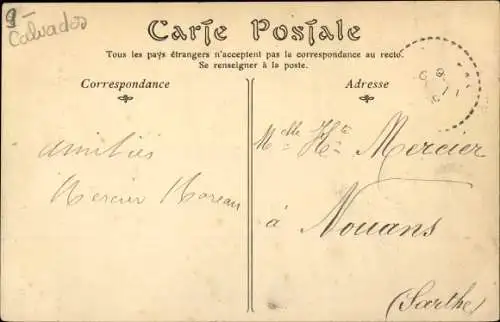 9-
Calvados
Carte Postale
Tous les pays étrangers n'acceptent pas la correspondance au recto.
Se renseigner à la poste.
Correspondance
Amitiés
Mercier Moreau
Adresse
Melle Hte Mercier
à Nouans
(Sarthe)